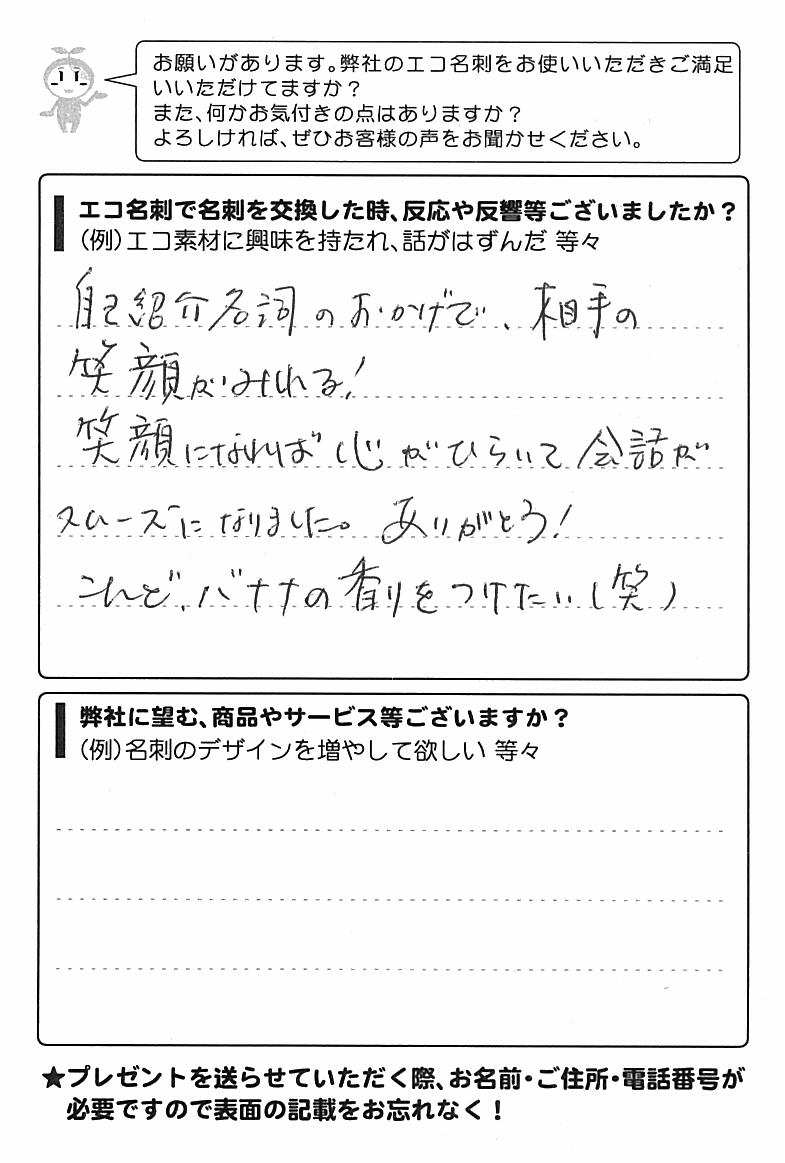 お願いがあります。弊社のエコ名刺をお使いいただきご満足
いいただけてますか？
また、何かお気付きの点はありますか？
よろしければ、ぜひお客様の声をお聞かせください。
エコ名刺で名刺を交換した時、反応や反響等ございましたか？
（例）エコ素材に興味を持たれ、話がはずんだ 等々
自己紹介名詞のおかげで、相手の
笑顔がみれる！
笑顔になれば心がひらいて会話が
スムーズになりました。ありがとう！
こんど、バナナの香りをつけたい（笑）
弊社に望む、商品やサービス等ございますか？
（例）名刺のデザインを増やして欲しい 等々
★プレゼントを送らせていただく際、お名前・ご住所・電話番号が
必要ですので表面の記載をお忘れなく！